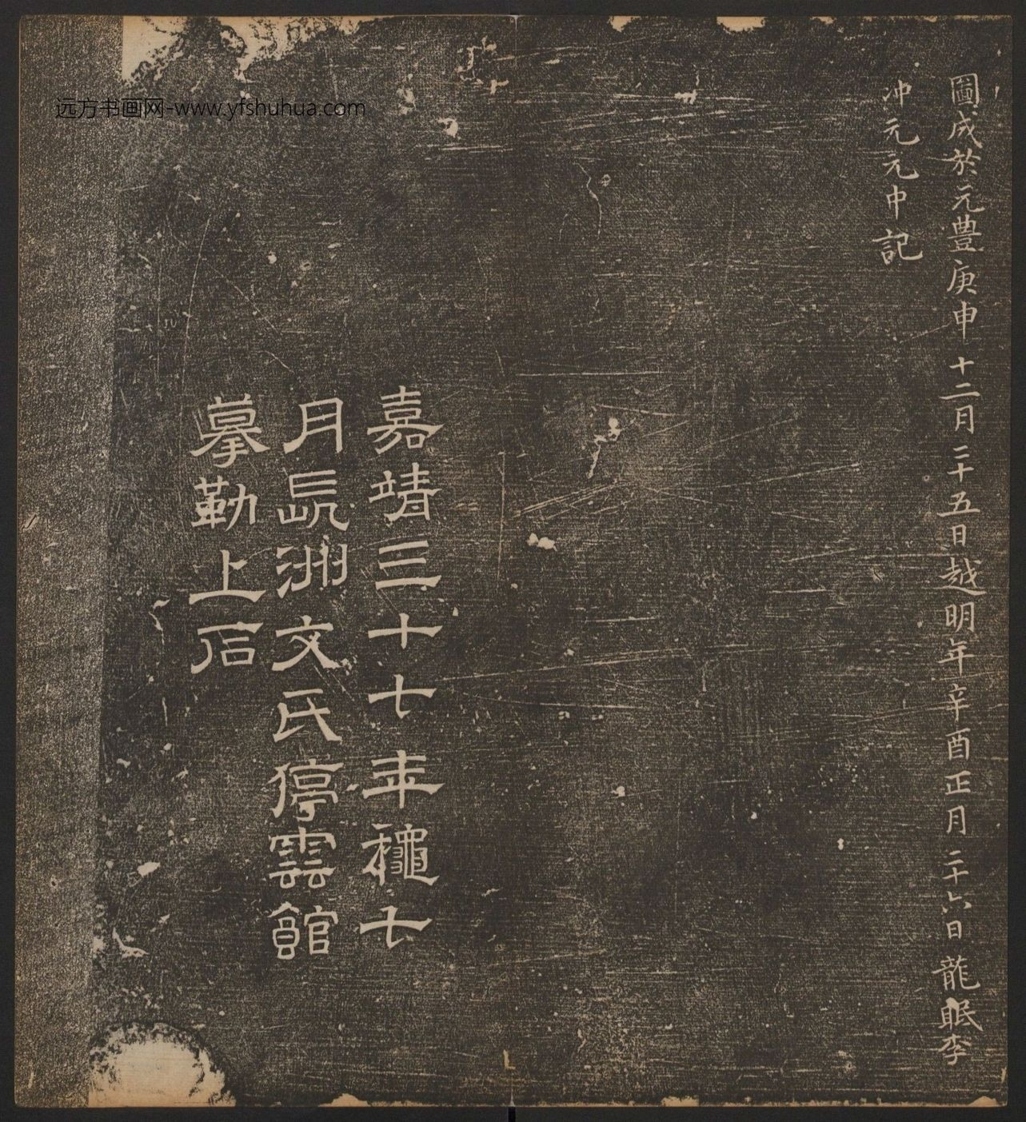 圖成於元豊庚申十二月二十五日越明年辛酉正月二十六日龍眠李
冲元元中記
嘉靖三十七年龝七
月長洲文氏停雲館
摹勒上石
远方书画网-www.yfshuhua.com